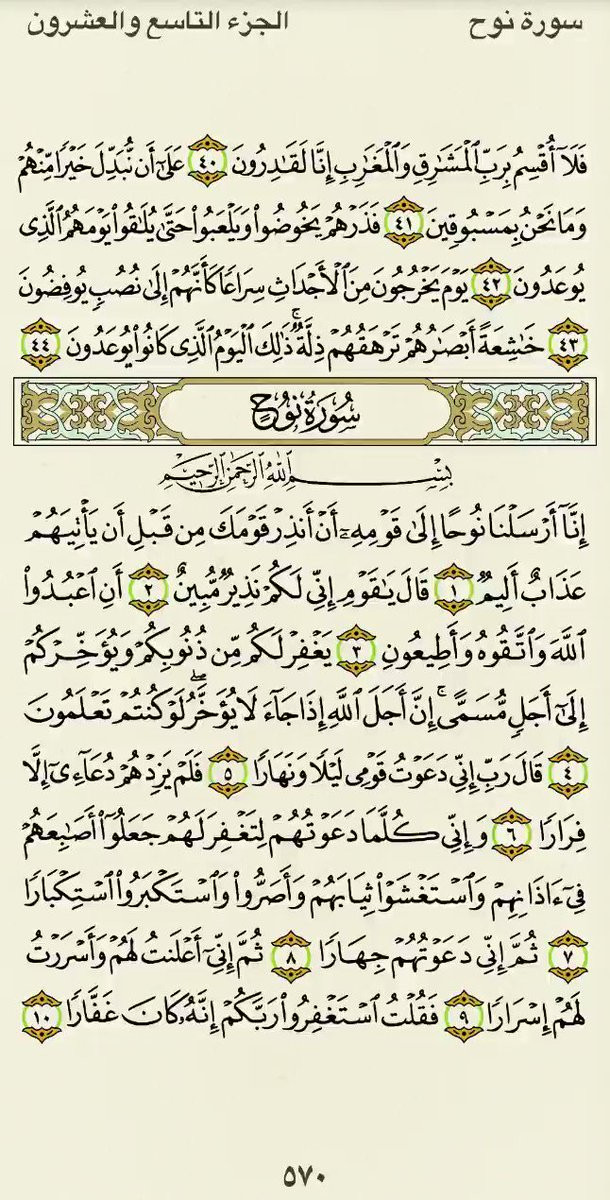 سورة نوح
الجزء التاسع والعشرون
فَلَآ أُقْسِمُ بِرَبِّ ٱلْمَشَٰرِقِ وَٱلْمَغَٰرِبِ إِنَّا لَقَٰدِرُونَ ٤٠ عَلَىٰٓ أَن نُّبَدِّلَ خَيْرًا مِّنْهُمْ
وَمَا نَحْنُ بِمَسْبُوقِينَ ٤١ فَذَرْهُمْ يَخُوضُوا۟ وَيَلْعَبُوا۟ حَتَّىٰ يُلَٰقُوا۟ يَوْمَهُمُ ٱلَّذِى
يُوعَدُونَ ٤٢ يَوْمَ يَخْرُجُونَ مِنَ ٱلْأَجْدَاثِ سِرَاعًا كَأَنَّهُمْ إِلَىٰ نُصُبٍ يُوفِضُونَ
٤٣ خَٰشِعَةً أَبْصَٰرُهُمْ تَرْهَقُهُمْ ذِلَّةٌ ۚ ذَٰلِكَ ٱلْيَوْمُ ٱلَّذِى كَانُوا۟ يُوعَدُونَ ٤٤
سُورَةُ نُوحٍ
بِسْمِ ٱللَّهِ ٱلرَّحْمَٰنِ ٱلرَّحِيمِ
إِنَّآ أَرْسَلْنَا نُوحًا إِلَىٰ قَوْمِهِۦٓ أَنْ أَنذِرْ قَوْمَكَ مِن قَبْلِ أَن يَأْتِيَهُمْ
عَذَابٌ أَلِيمٌ ١ قَالَ يَٰقَوْمِ إِنِّى لَكُمْ نَذِيرٌ مُّبِينٌ ٢ أَنِ ٱعْبُدُوا۟
ٱللَّهَ وَٱتَّقُوهُ وَأَطِيعُونِ ٣ يَغْفِرْ لَكُم مِّن ذُنُوبِكُمْ وَيُؤَخِّرْكُمْ
إِلَىٰٓ أَجَلٍ مُّسَمًّى ۚ إِنَّ أَجَلَ ٱللَّهِ إِذَا جَآءَ لَا يُؤَخَّرُ ۖ لَوْ كُنتُمْ تَعْلَمُونَ
٤ قَالَ رَبِّ إِنِّى دَعَوْتُ قَوْمِى لَيْلًا وَنَهَارًا ٥ فَلَمْ يَزِدْهُمْ دُعَآءِىٓ إِلَّا
فِرَارًا ٦ وَإِنِّى كُلَّمَا دَعَوْتُهُمْ لِتَغْفِرَ لَهُمْ جَعَلُوٓا۟ أَصَٰبِعَهُمْ
فِىٓ ءَاذَانِهِمْ وَٱسْتَغْشَوْا۟ ثِيَابَهُمْ وَأَصَرُّوا۟ وَٱسْتَكْبَرُوا۟ ٱسْتِكْبَارًا
٧ ثُمَّ إِنِّى دَعَوْتُهُمْ جِهَارًا ٨ ثُمَّ إِنِّىٓ أَعْلَنتُ لَهُمْ وَأَسْرَرْتُ
لَهُمْ إِسْرَارًا ٩ فَقُلْتُ ٱسْتَغْفِرُوا۟ رَبَّكُمْ إِنَّهُۥ كَانَ غَفَّارًا ١٠
٥٧٠